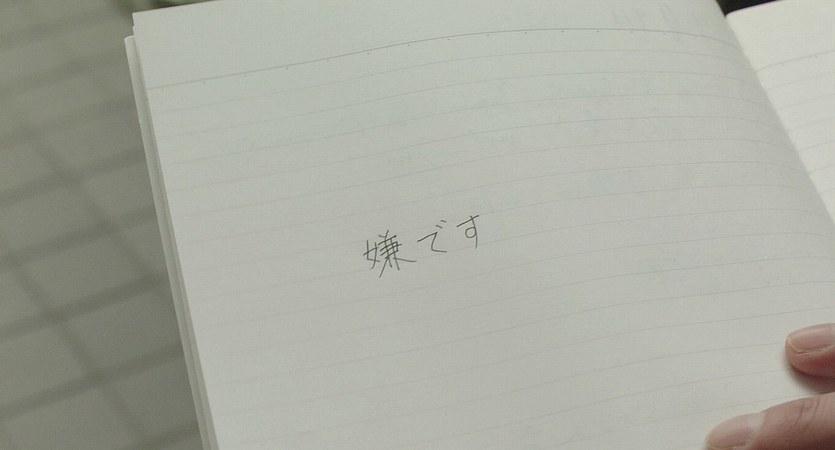 嫌です